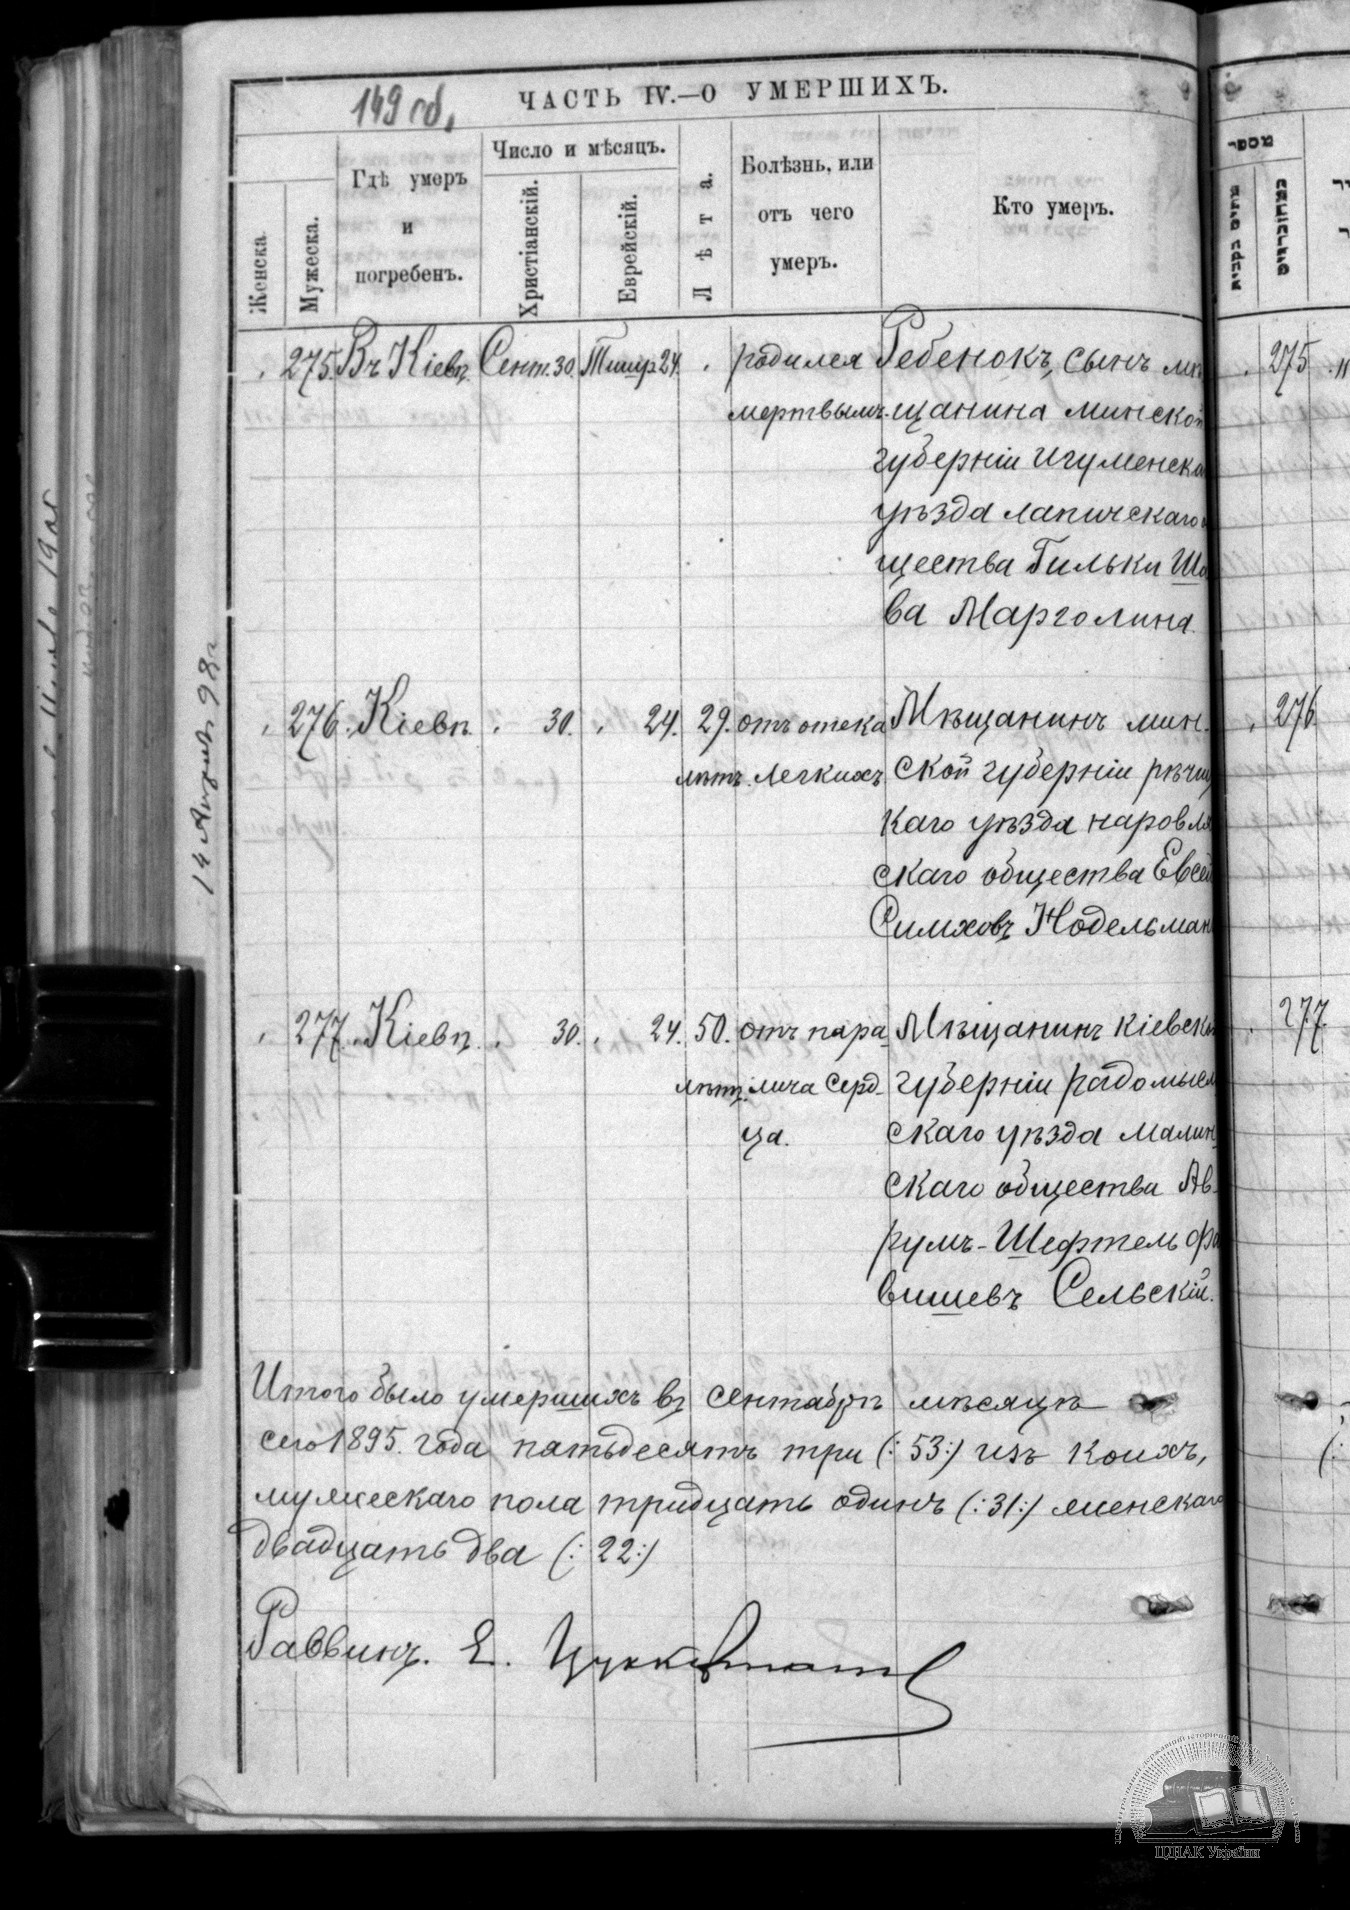 149 об.
ЧАСТЬ IV.—О УМЕРШИХЪ.
Женска.
Мужеска.
Гдѣ умеръ
и
погребенъ.
Число и мѣсяцъ.
Христіанскій.
Еврейскій.
Лѣта.
Болѣзнь, или
отъ чего
умеръ.
Кто умеръ.
מספר
275. Въ Кіевѣ. Сент. 30. Тишр. 24. родился Ребенокъ, сынъ мѣ
мертвымъ. щанина минской
губерніи игуменска
уѣзда лапичскаго о
щества Гильки Шо
ва Марголина.
275
276. Кіевѣ. 30. 24. 29. отъ отека Мѣщанинъ мин-
лѣтъ. легкихъ ской губерніи рѣчиц
каго уѣзда наровля
скаго общества Евсей
Симховъ Нодельман
276
277. Кіевѣ. 30. 24. 50. отъ пара Мѣщанинъ кіевской
лѣтъ. лича серд- губерніи радомысл
ца. скаго уѣзда малин
скаго общества Ав-
румъ-Шефтель Фа
вишевъ Сельскій.
277
Итого было умершихъ въ сентябрѣ мѣсяцѣ
сего 1895. года пятьдесятъ три (: 53:) изъ коихъ,
мужескаго пола тридцать одинъ (:31:) женскаго
двадцать два (: 22:)
Раввинъ. Е. Цуккерман
ЦДІАК України